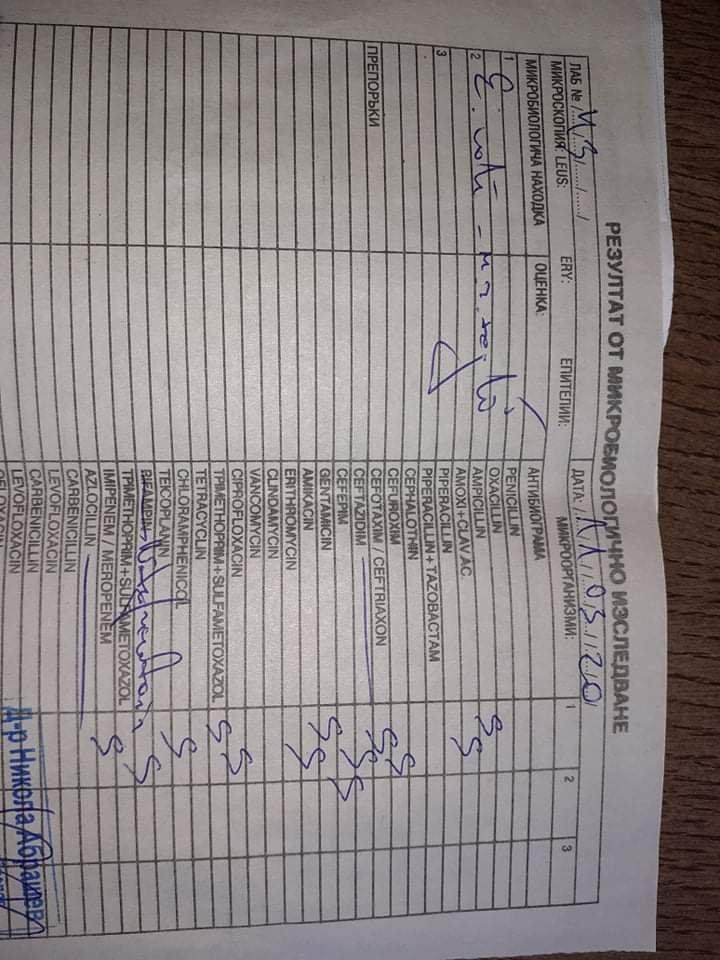 РЕЗУЛТАТ ОТ МИКРОБИОЛОГИЧНО ИЗСЛЕДВАНЕ
ЛАБ № /....../....../....../ ДАТА: /11/03/20/
МИКРОСКОПИЯ: LEUS: ERY: ЕПИТЕЛИИ: МИКРООРГАНИЗМИ: 1 2 3
МИКРОБИОЛОГИЧА НАХОДКА ОЦЕНКА: АНТИБИОГРАМА
1 E. coli PENICILLIN
OXACILLIN
2 AMPICILLIN
AMOXI+CLAV AC. S
3 PIPERACILLIN
PIPERACILLIN + TAZOBACTAM
CEPHALOTHIN
CEFUROXIM S
CEFOTAXIM / CEFTRIAXON S
ПРЕПОРЪКИ CEFTAZIDIM S
CEFEPIM S
GENTAMICIN S
AMIKACIN S
ERITHROMYCIN
CLINDAMYCIN
VANCOMYCIN
CIPROFLOXACIN S
TRIMETHOPRIM+SULFAMETOXAZOL S
TETRACYCLIN
CHLORAMPHENICOL S
TEICOPLANIN
RIFAMPIN S
TPIMETHOPRIM+SULFAMETOXAZOL
IMIPENEM / MEROPENEM S
AZLOCILLIN
CARBENICILLIN
LEVOFLOXACIN
CARBENICILLIN
LEVOFLOXACIN
Д-р Никола Абрашев